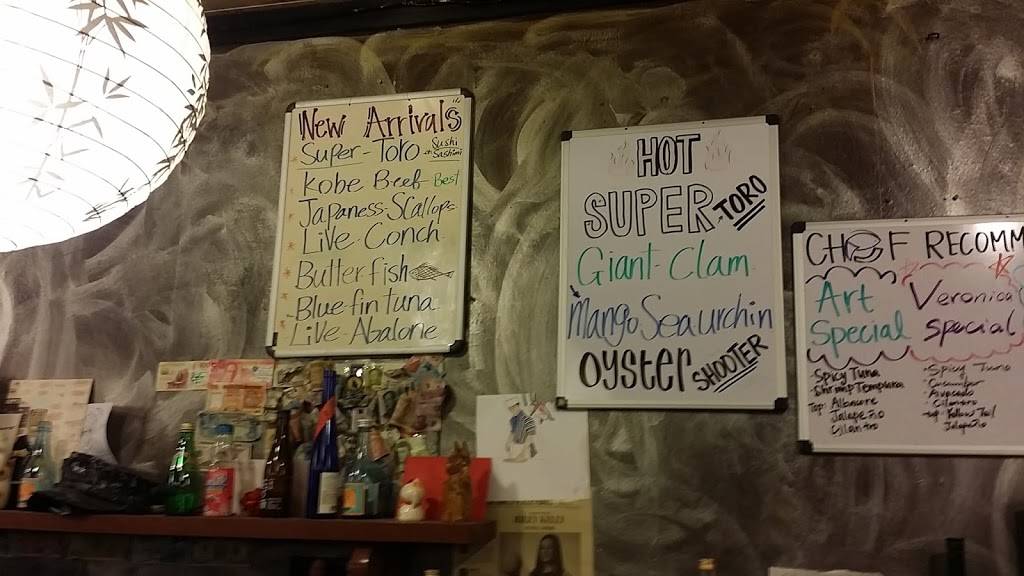 New Arrivals
Super-Toro Sushi or Sashimi
Kobe Beef-Best
Japaness-Scallops
Live-Conch
Butterfish
Blue-fin tuna
Live-Abalone
HOT
SUPER-TORO
Giant-Clam
Mango Seaurchin
OYSTER SHOOTER
CHEF RECOMM
Art
Special
Spicy Tuna
Shrimp Tempura
Top: Albacore
Jalapeño
Cilantro
Veronica
special
Spicy Tuna
Cucumber
Avocado
Cilantro
top Yellow Tail
Jalapeño